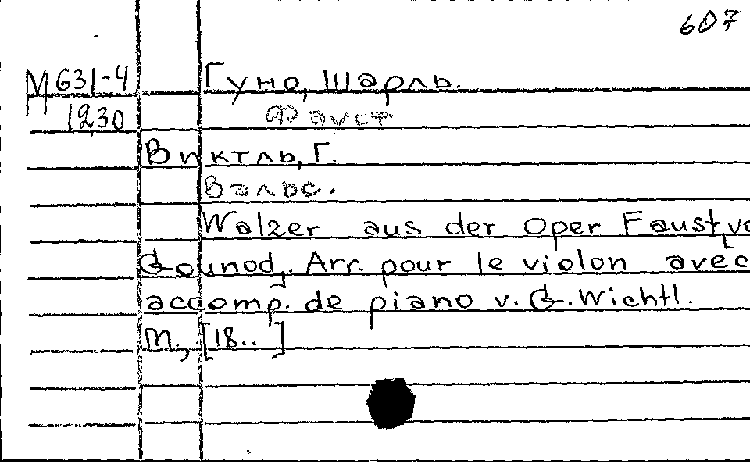 607
М 631-4 Гуно, Шарль.
1230 Фауст
Виктль, Г.
Вальс.
Walzer aus der Oper Faust v
Gounod, Arr. pour le violon avec
accomp. de piano v. G. Wichtl.
M., [18.. ]